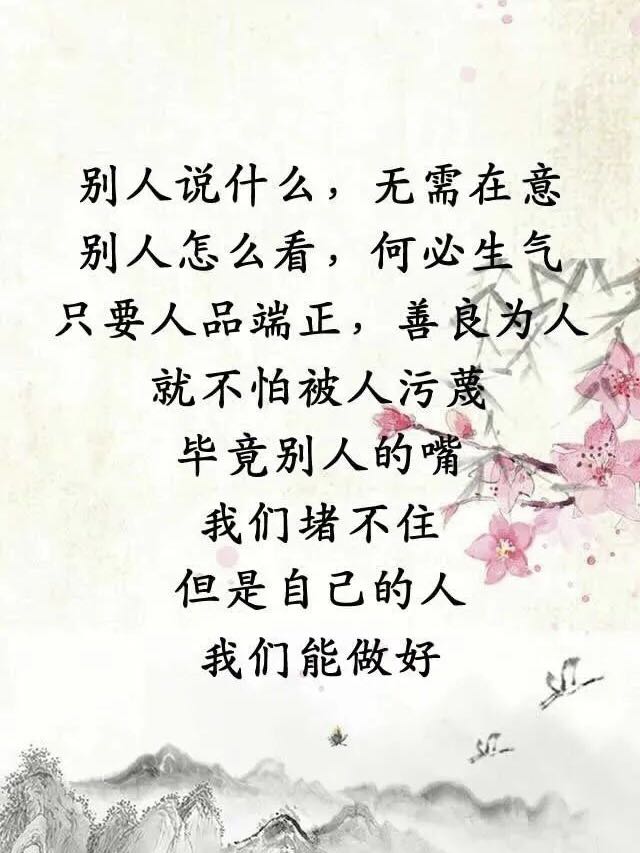 别人说什么，无需在意
别人怎么看，何必生气
只要人品端正，善良为人
就不怕被人污蔑
毕竟别人的嘴
我们堵不住
但是自己的人
我们能做好